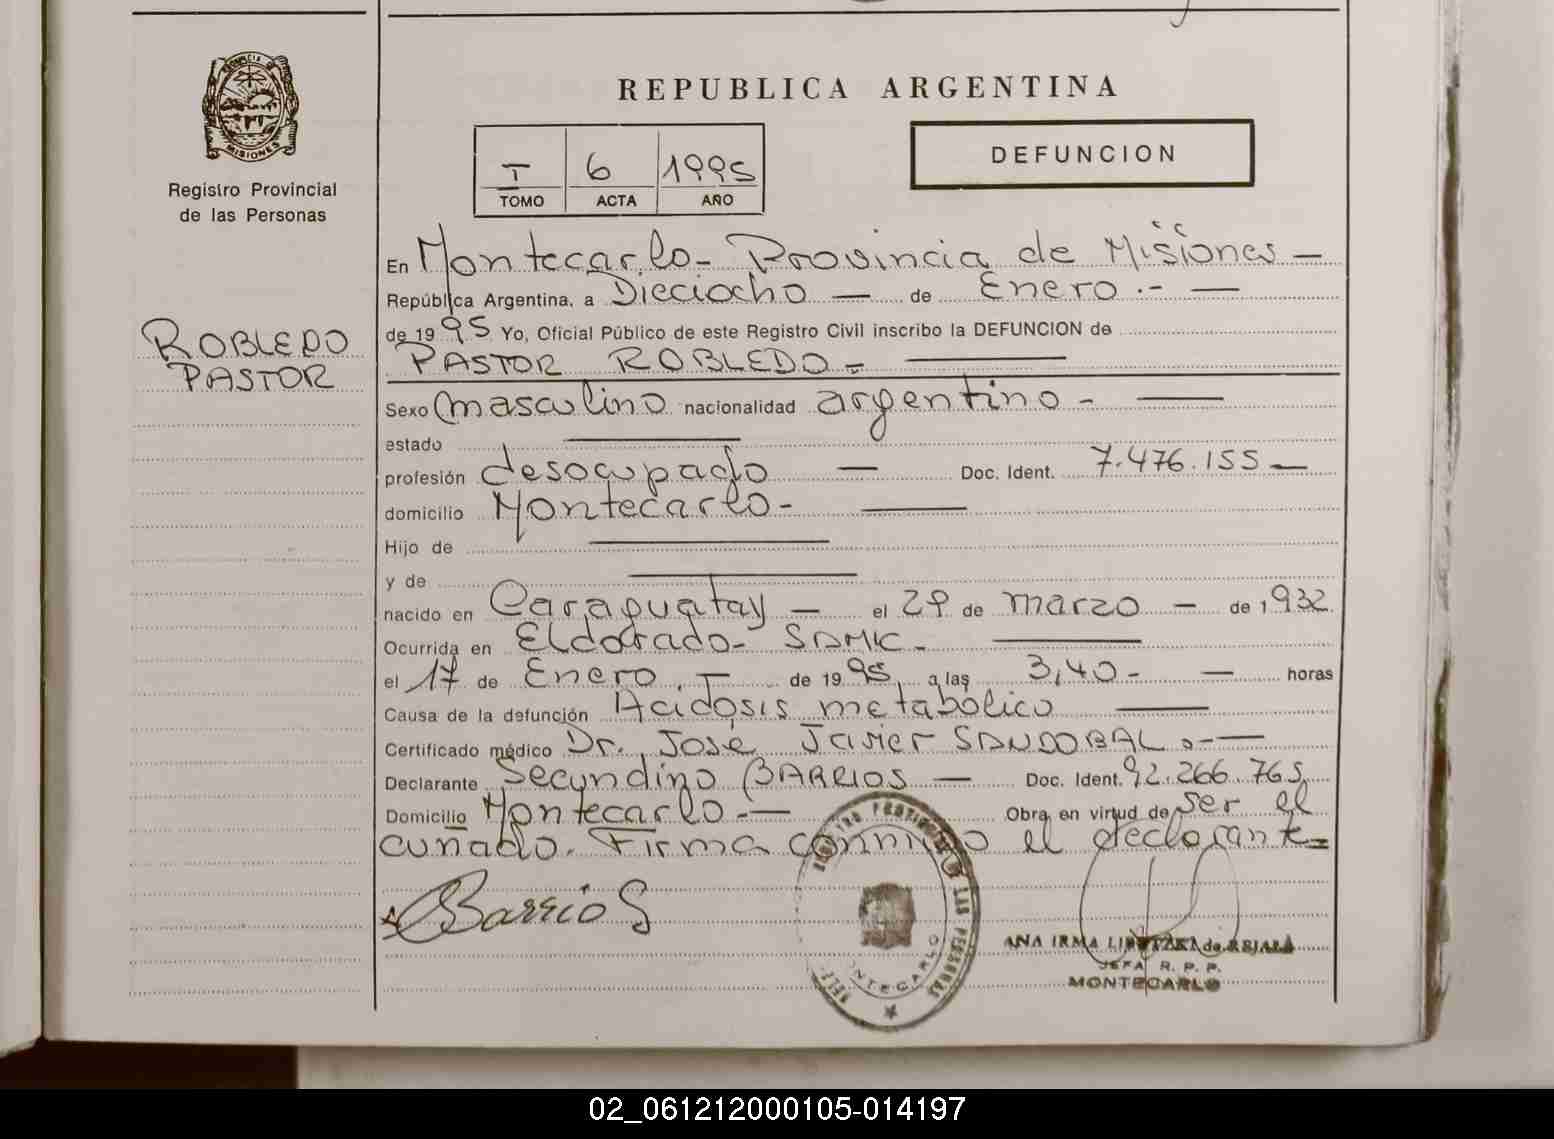 REPUBLICA ARGENTINA
PROVINCIA DE MISIONES
Registro Provincial
de las Personas
I 6 1995
TOMO ACTA AÑO
DEFUNCION
ROBLEDO
PASTOR
En Montecarlo - Provincia de Misiones -
República Argentina, a Dieciocho — de Enero .- —
de 1995 Yo, Oficial Público de este Registro Civil inscribo la DEFUNCION de
PASTOR ROBLEDO -
Sexo masculino nacionalidad argentino - —
estado —
profesión desocupado — Doc. Ident. 7.476.155 —
domicilio Montecarlo - —
Hijo de —
y de —
nacido en Caraguatay — el 29 de marzo — de 1.932
Ocurrida en Eldorado - SAMIC - —
el 17 de Enero . — de 1995 a las 3,40 - — horas
Causa de la defunción Acidosis metabólico —
Certificado médico Dr. José Javier SANDOBAL .- —
Declarante Secundino BARRIOS — Doc. Ident. 92.266.765
Domicilio Montecarlo - — Obra en virtud de ser el
cuñado. Firma conmigo el declarante =
Barrios
MONTECARLO
ANA IRMA de REJALA
JEFA R. P. P.
MONTECARLO
02_061212000105-014197